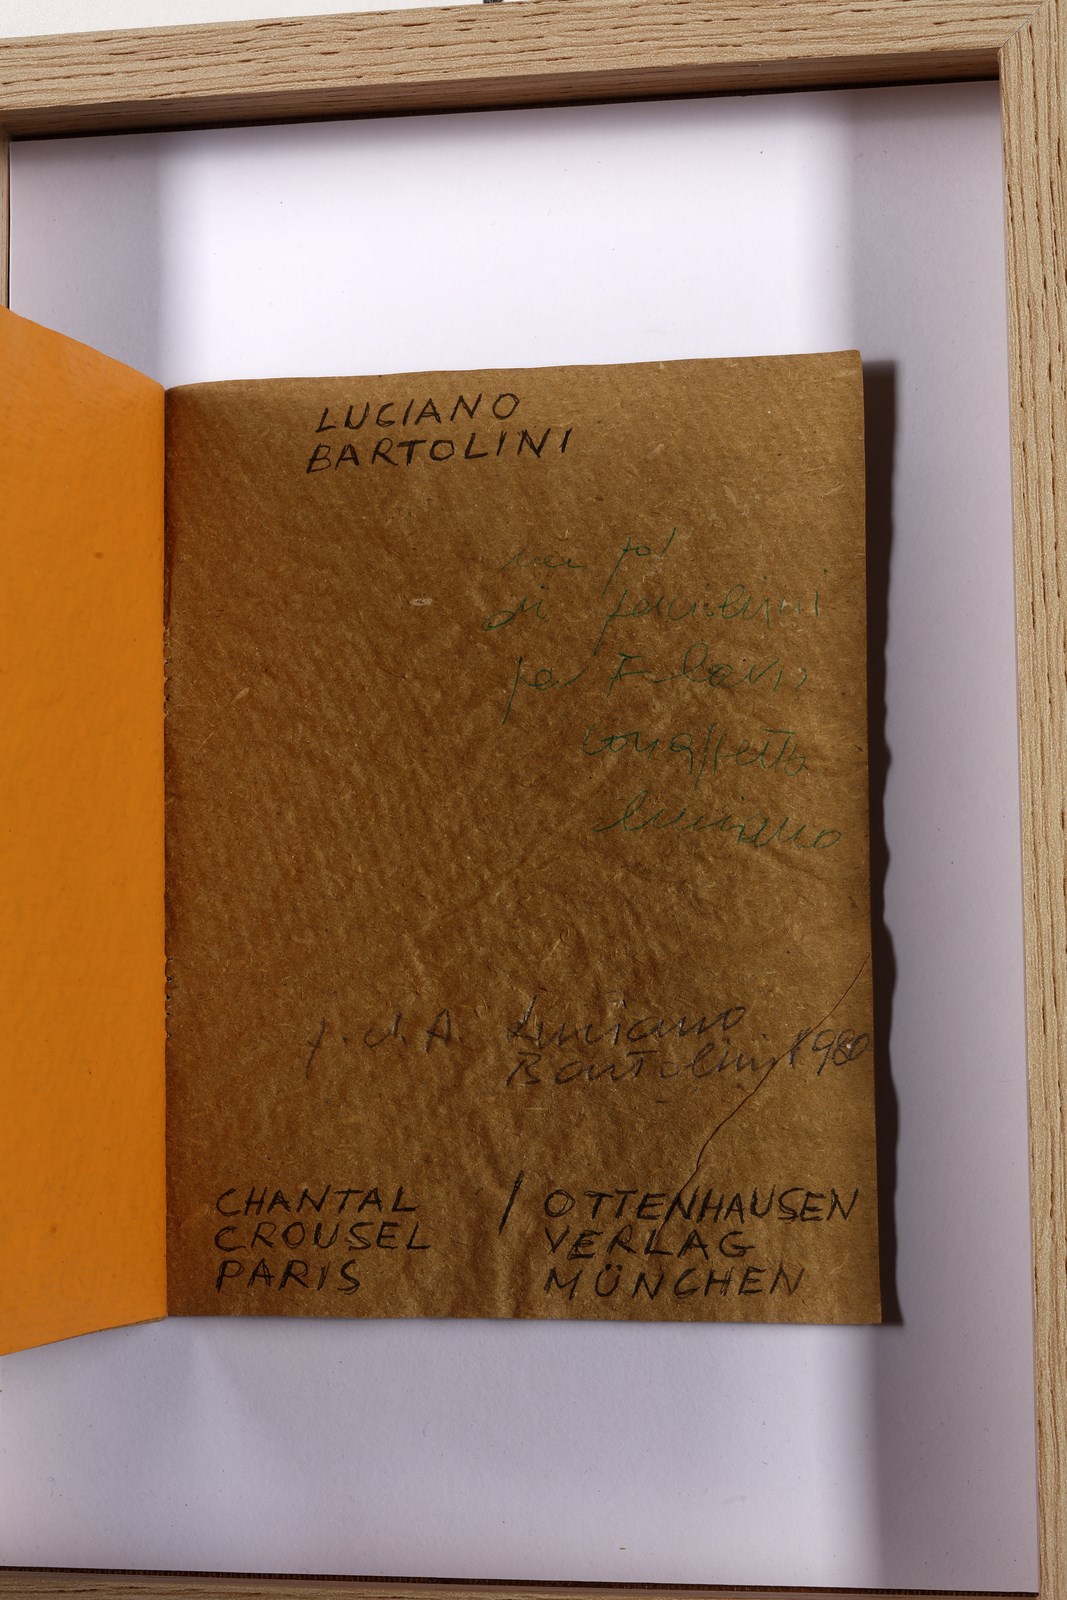 LUCIANO
BARTOLINI
di
per Flavio
con affetto
Luciano
p. d. A. Luciano
Bartolini 1980
CHANTAL / OTTENHAUSEN
CROUSEL VERLAG
PARIS MÜNCHEN